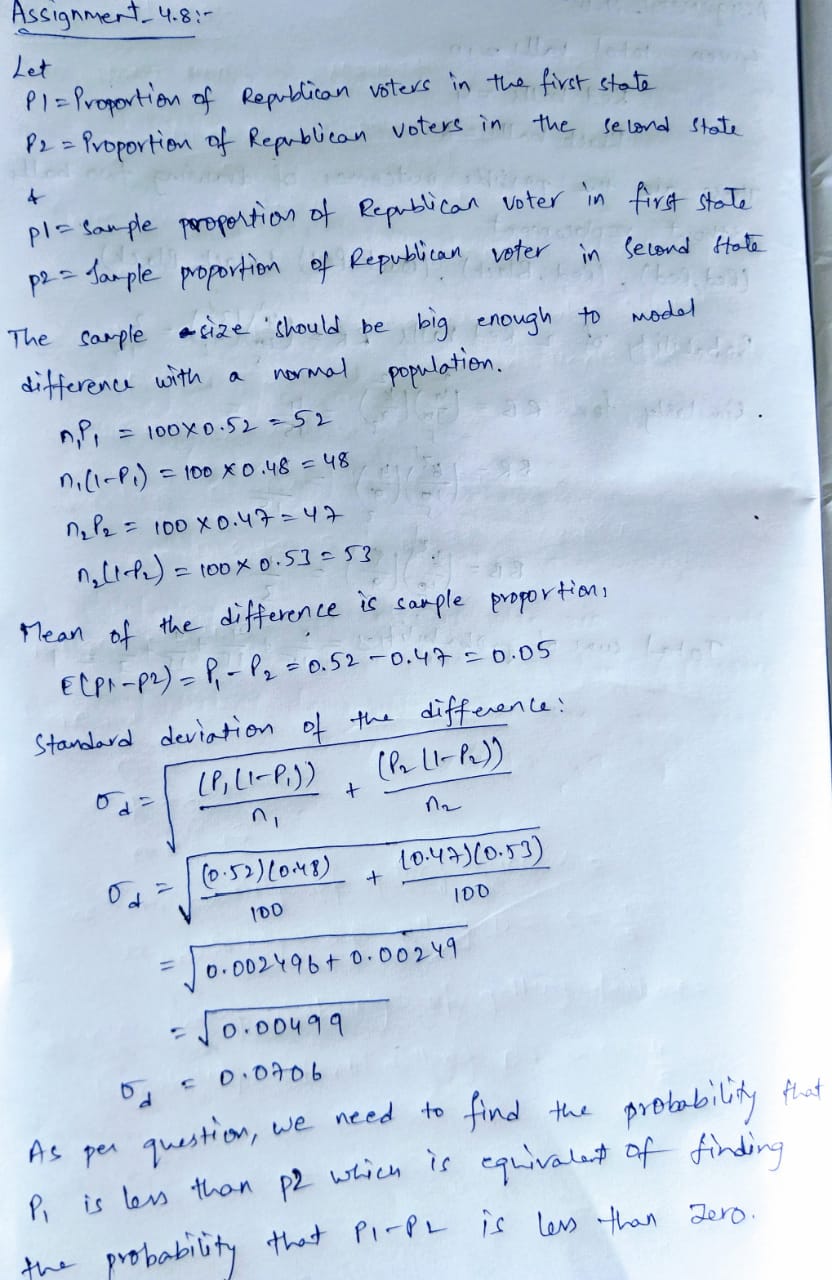 Assignment_4.8:-
Let
P1 = Proportion of Republican voters in the first state
P2 = Proportion of Republican voters in the second state
&
p1 = Sample proportion of Republican voter in first state
p2 = Sample proportion of Republican voter in second state
The sample size should be big enough to model
difference with a normal population.
n₁P₁ = 100×0.52 = 52
n₁(1-P₁) = 100 × 0.48 = 48
n₂P₂ = 100 × 0.47 = 47
n₂(1-P₂) = 100 × 0.53 = 53
Mean of the difference is sample proportion,
E(p1-p2) = P₁ - P₂ = 0.52 - 0.47 = 0.05
Standard deviation of the difference:
σd = √((P₁(1-P₁))/n₁ + (P₂(1-P₂))/n₂)
σd = √((0.52)(0.48)/100 + (0.47)(0.53)/100)
= √(0.002496 + 0.00249)
= √0.00499
σd = 0.0706
As per question, we need to find the probability that
P₁ is less than p2 which is equivalent of finding
the probability that P1-P2 is less than zero.